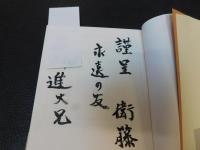 謹呈 衛藤
永遠の友
進大兄